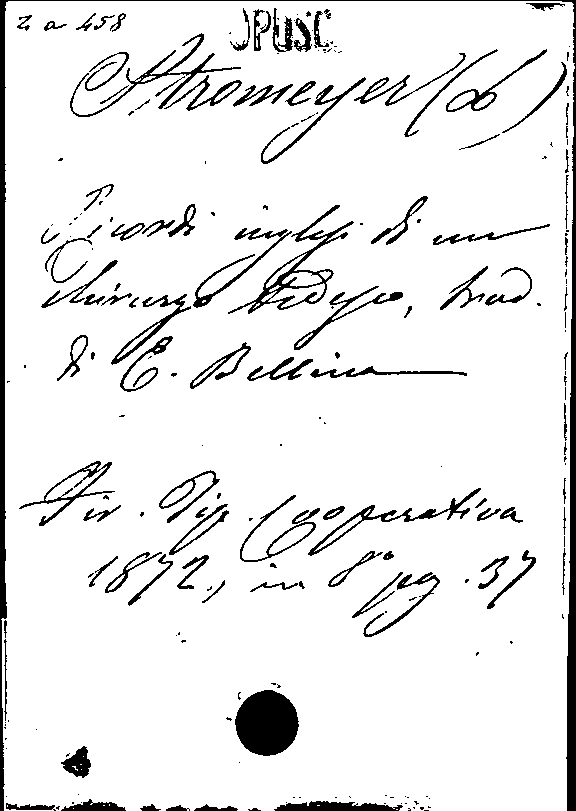 Z a 458
OPUSC
Stromeyer (
Ricordi inglesi di un
chirurgo tedesco, trad.
di E. Bellina
Fir. Tip. Cooperativa
1872, in 8° pg. 37